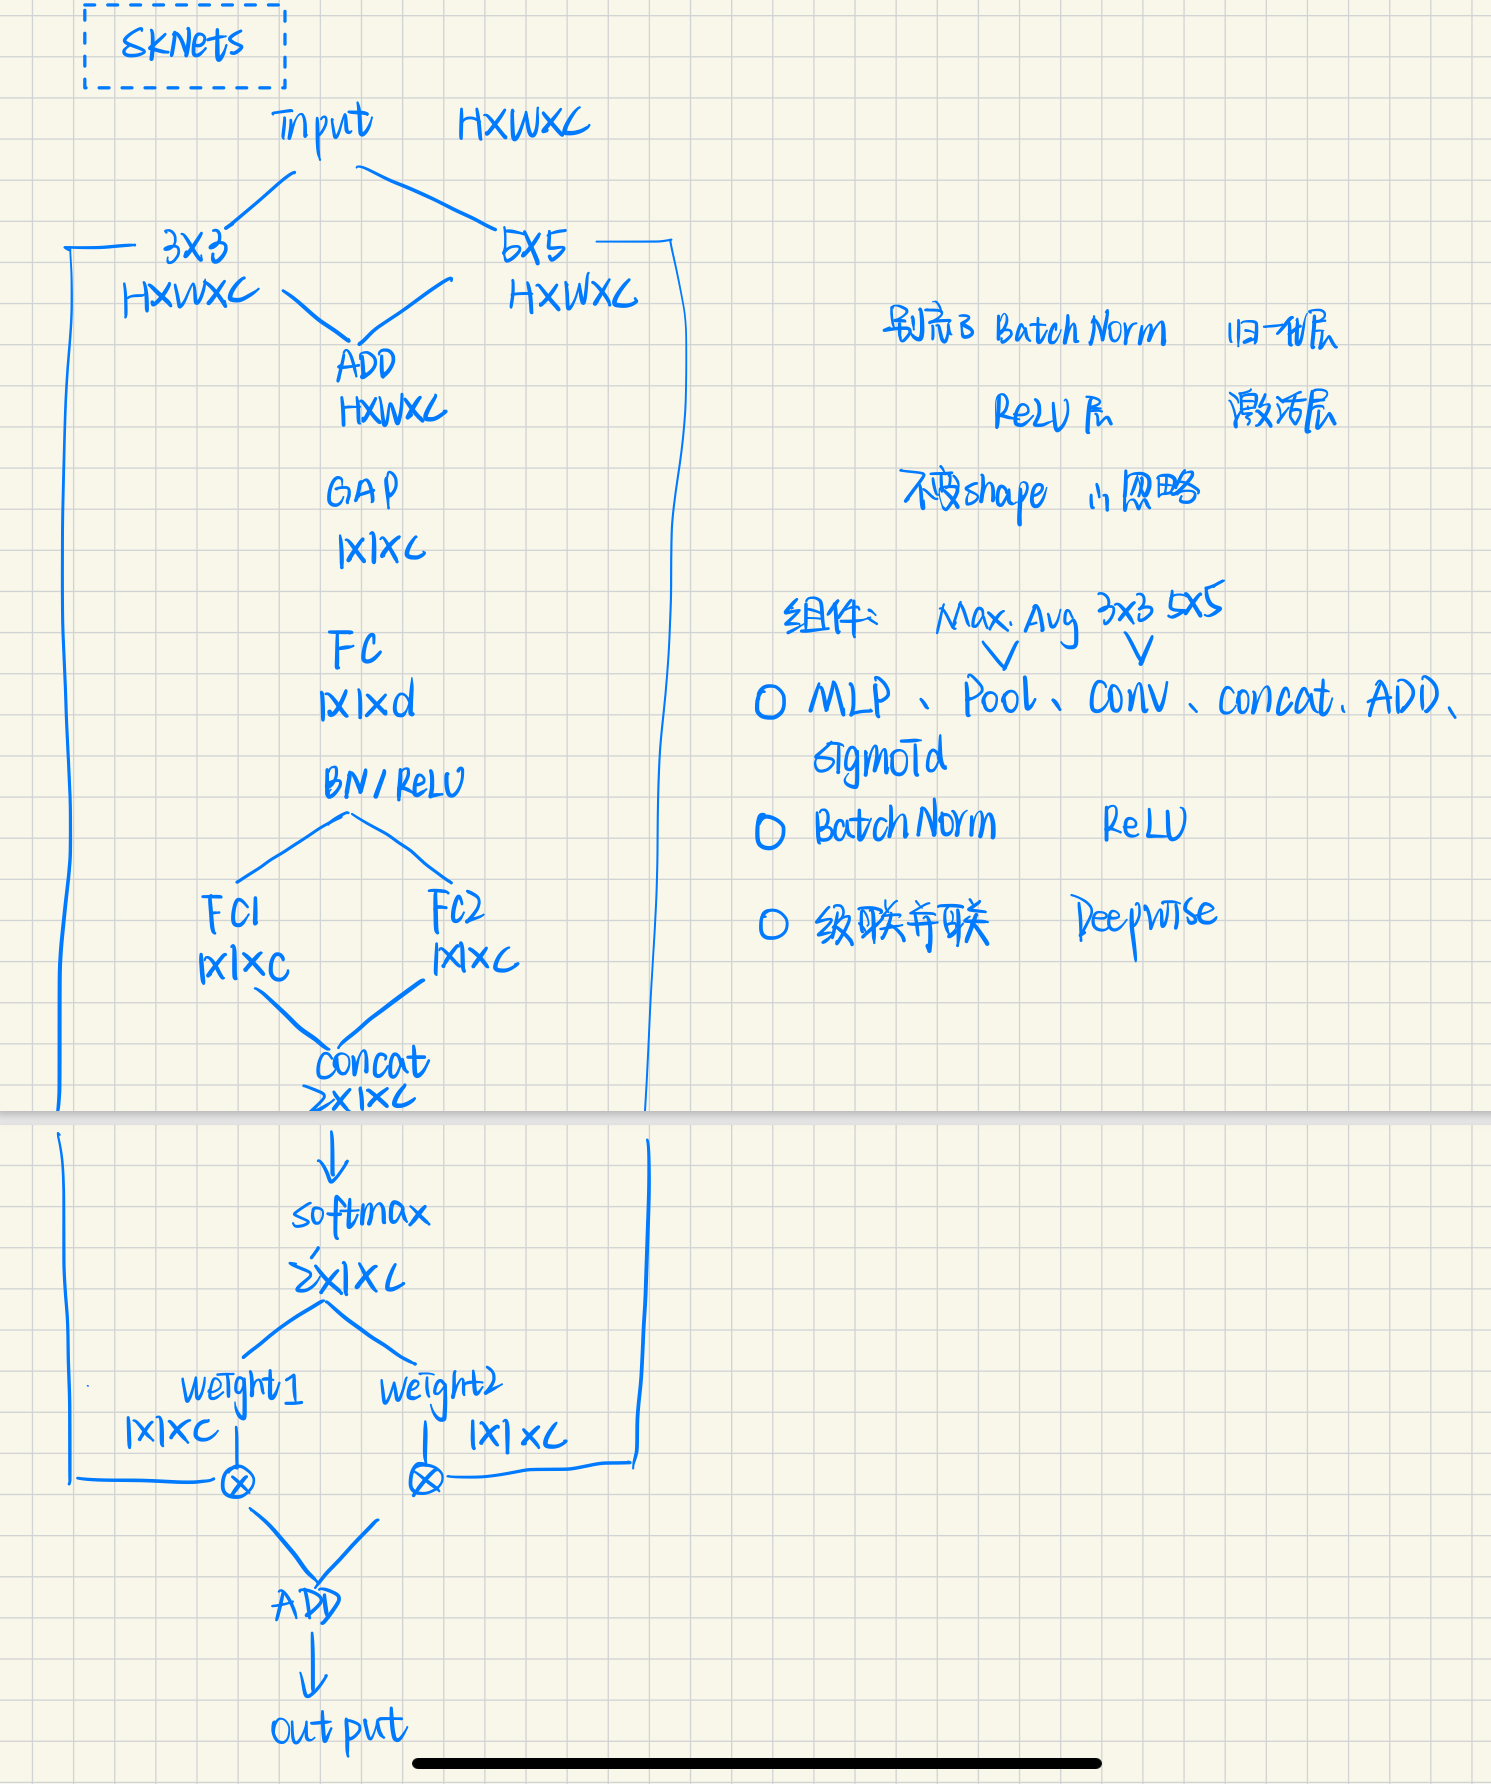 SKNets
Input HXWXC
3X3 5X5
HXWXC HXWXC
ADD
HXWXC
GAP
1X1XC
FC
1X1Xd
BN/ReLU
FC1 FC2
1X1XC 1X1XC
concat
2X1XC
softmax
2X1XC
weight1 weight2
1X1XC 1X1XC
ADD
output
别忘了 BatchNorm 归一化层
ReLU层 激活层
不变shape 忽略
组件: Max. Avg 3X3 5X5
MLP、Pool、CONV、concat. ADD、
sigmoid
BatchNorm ReLU
级联并联 Deepwise